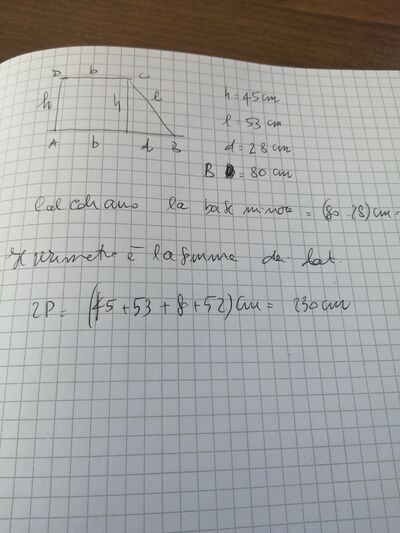 D b C
h h l
A b d B
h = 45 cm
l = 53 cm
d = 28 cm
B = 80 cm
Calcoliamo la base minore = (80-28) cm =
Il perimetro è la somma dei lat.
2P = (45 + 53 + 8 + 52) cm = 230 cm